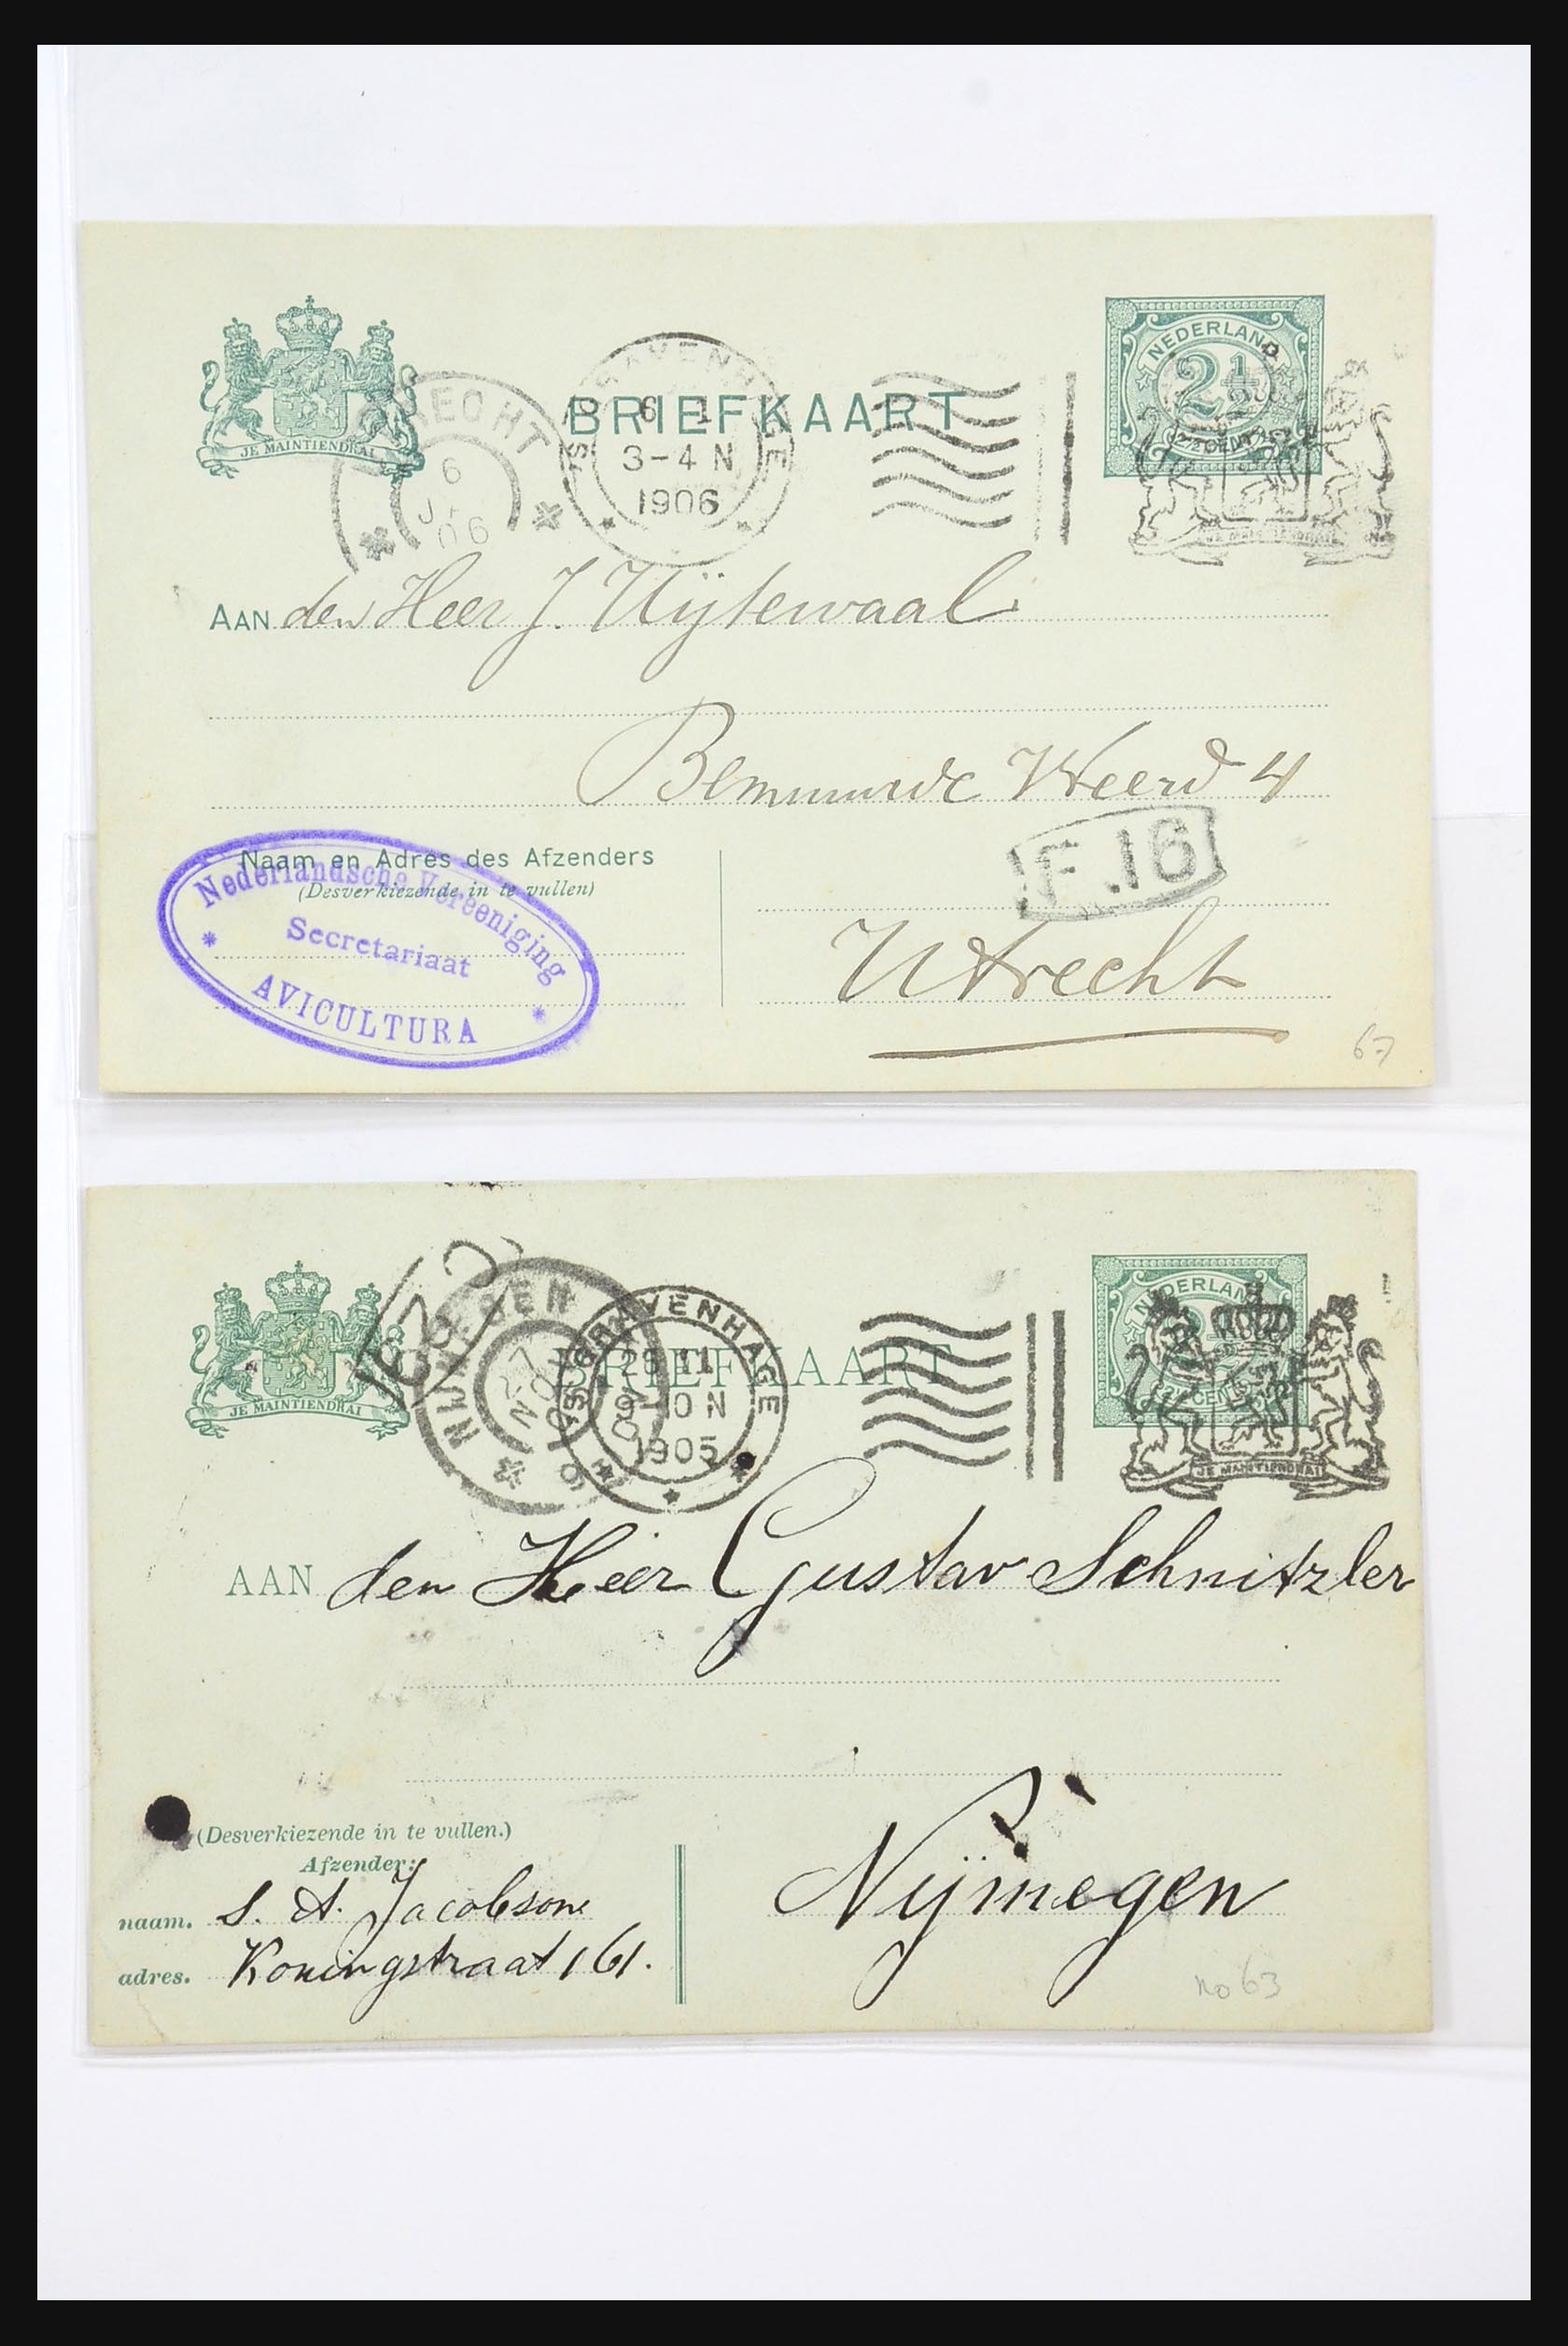 NEDERLAND
2½
2½ CENT
JE MAINTIENDRAI
'S GRAVENHAGE
6 1
3-4 N
1906
BRIEFKAART
JE MAINTIENDRAI
UTRECHT
6
06
AAN den Heer J. Uijtewaal
Bemuurde Weerd 4
F.16
Naam en Adres des Afzenders
(Desverkiezende in te vullen)
Nederlandsche Vereeniging
Secretariaat
AVICULTURA
Utrecht
67
NEDERLAND
CENT
JE MAINTIENDRAI
JE MAINTIENDRAI
NIJMEGEN
'S GRAVENHAGE
11
9-10 N
1905
BRIEFKAART
AAN den Heer Gustav Schnitzler
(Desverkiezende in te vullen.)
Afzender:
naam. S. A. Jacobson
adres. Koningstraat 161.
Nijmegen
no 63